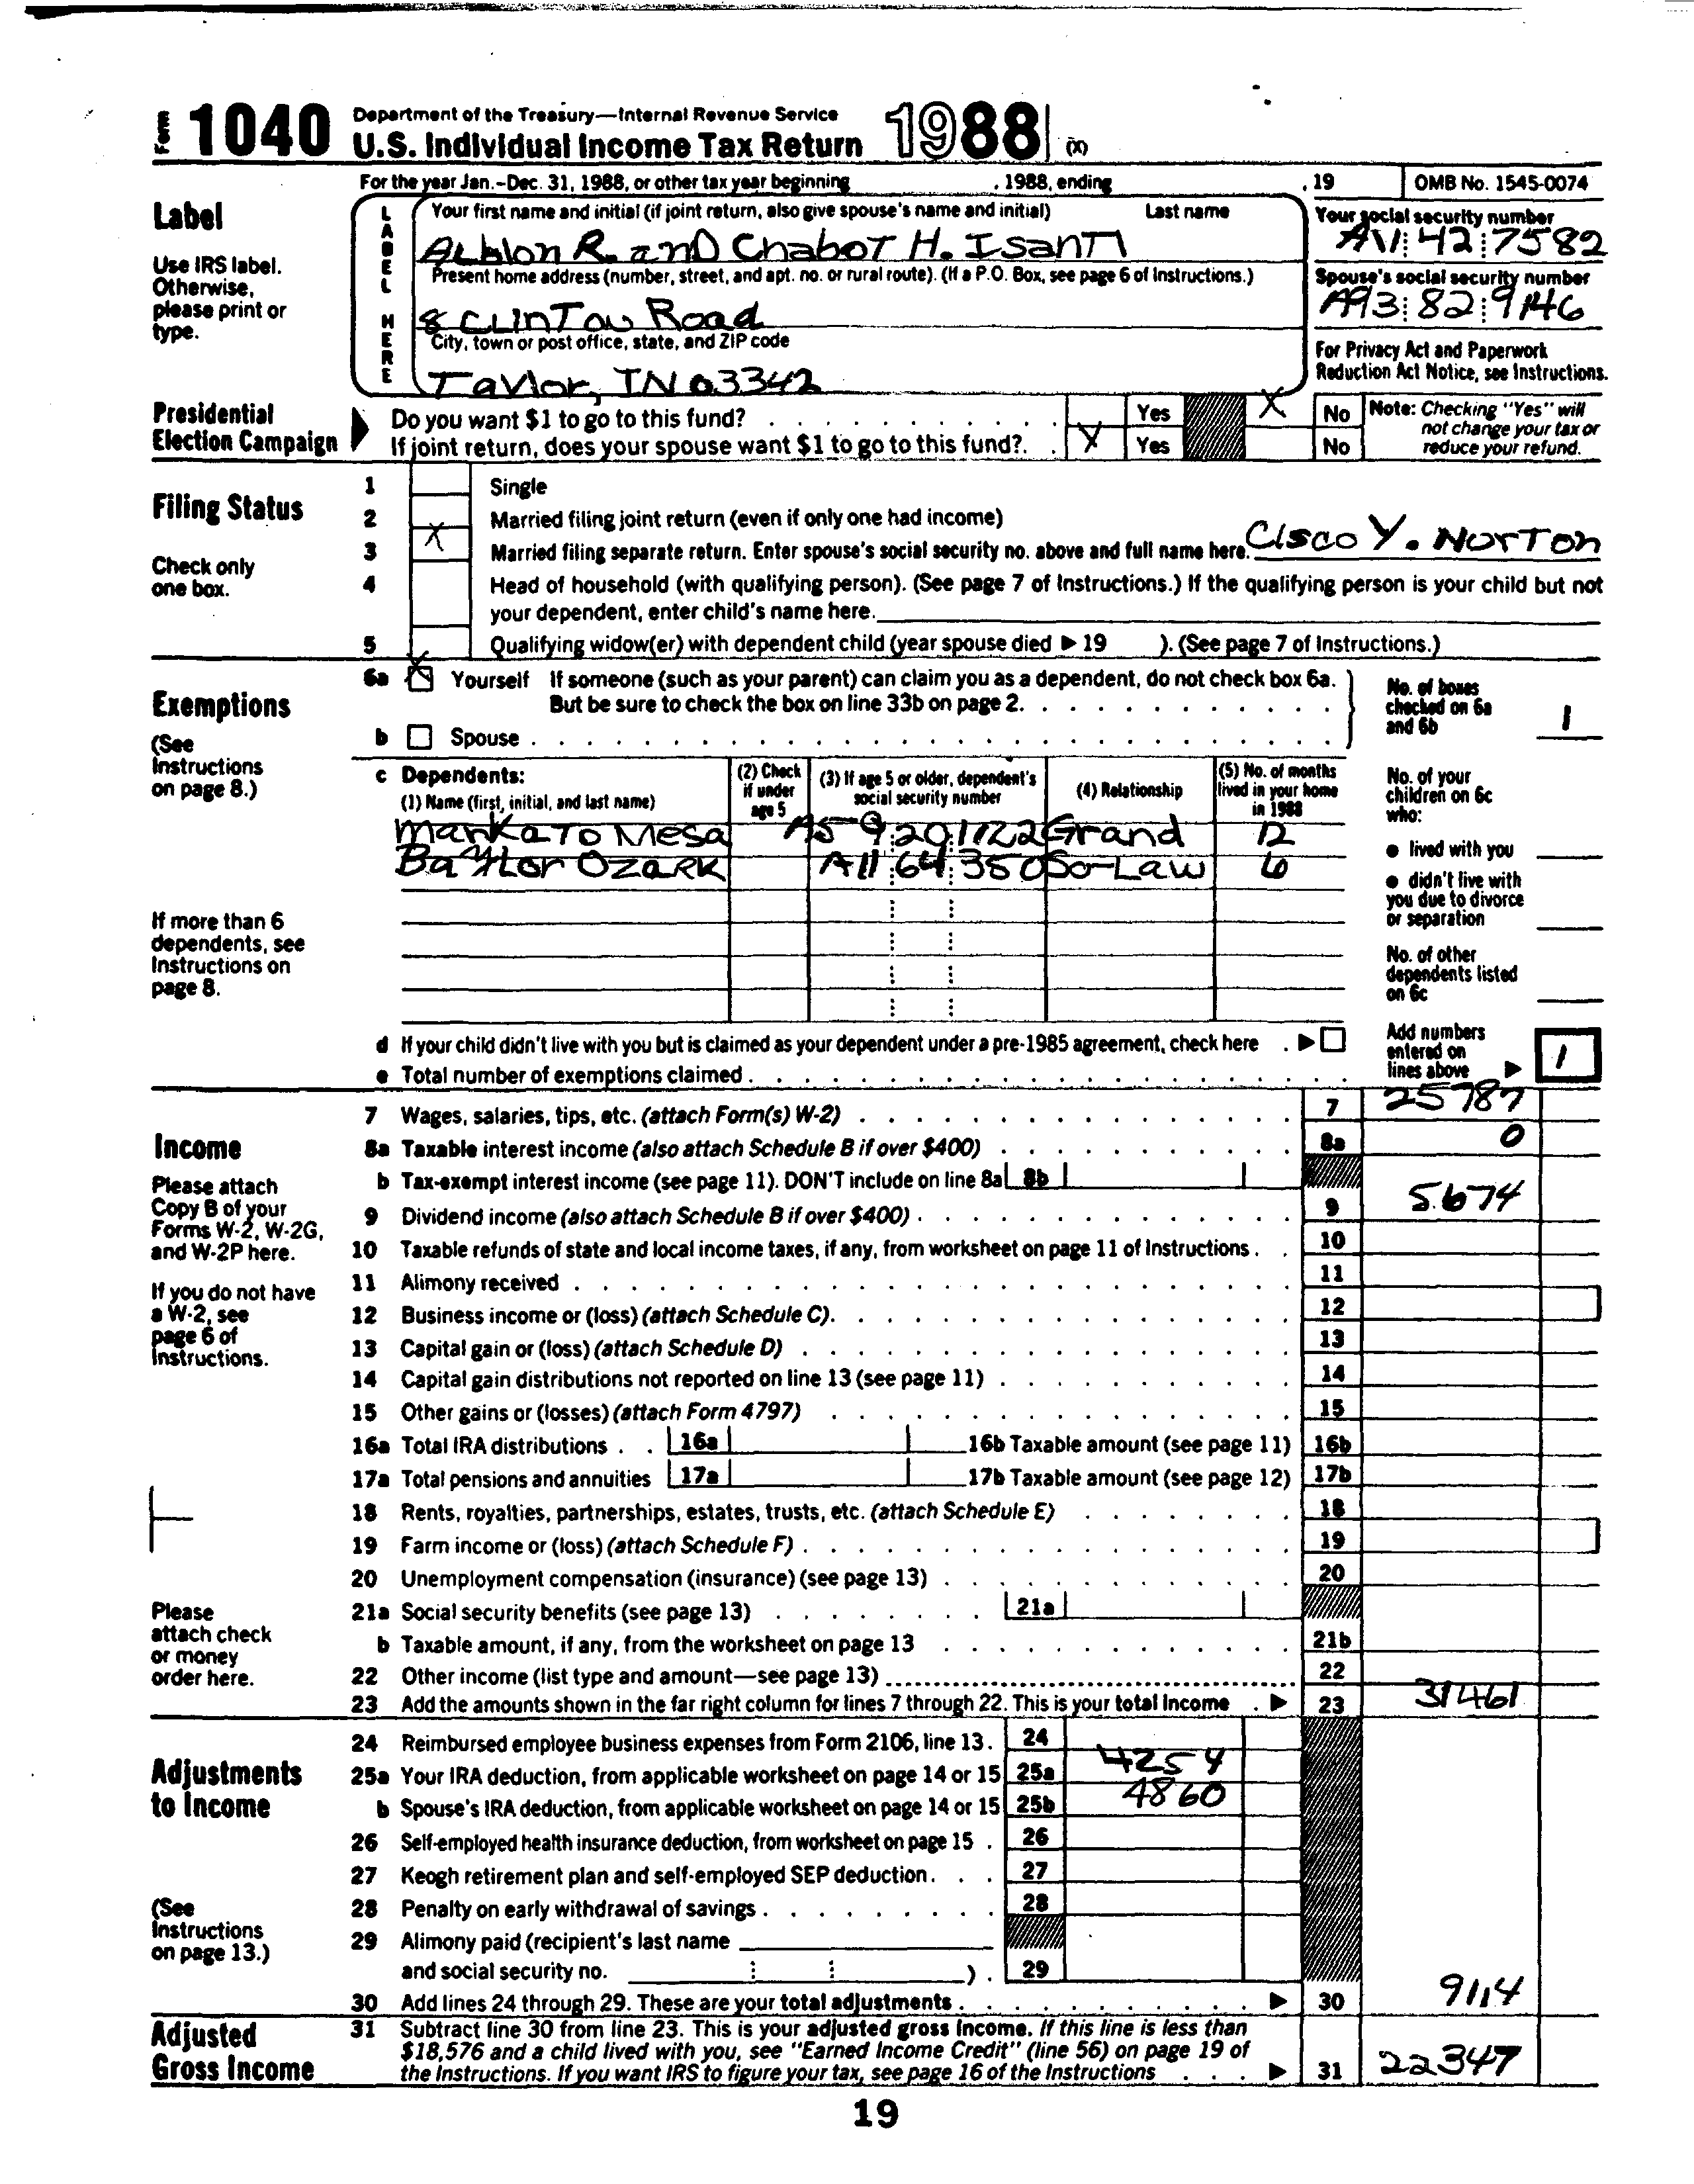 Form 1040 Department of the Treasury—Internal Revenue Service
U.S. Individual Income Tax Return 1988 (X)
For the year Jan.-Dec. 31, 1988, or other tax year beginning , 1988, ending , 19 OMB No. 1545-0074
Label
Use IRS label.
Otherwise,
please print or
type.
LABEL HERE
Your first name and initial (if joint return, also give spouse's name and initial) Last name
Albion R. and Chabot H. Isanti
Present home address (number, street, and apt. no. or rural route). (If a P.O. Box, see page 6 of Instructions.)
8 Clinton Road
City, town or post office, state, and ZIP code
Taylor, IN 03342
Your social security number
42 7582
Spouse's social security number
A93 82 9146
For Privacy Act and Paperwork
Reduction Act Notice, see Instructions.
Presidential
Election Campaign
Do you want $1 to go to this fund? Yes X No
If joint return, does your spouse want $1 to go to this fund? X Yes No
Note: Checking "Yes" will
not change your tax or
reduce your refund.
Filing Status
Check only
one box.
1 Single
2 Married filing joint return (even if only one had income)
3 X Married filing separate return. Enter spouse's social security no. above and full name here. Cisco Y. Norton
4 Head of household (with qualifying person). (See page 7 of Instructions.) If the qualifying person is your child but not
your dependent, enter child's name here.
5 Qualifying widow(er) with dependent child (year spouse died ▶ 19 ). (See page 7 of Instructions.)
Exemptions
(See
Instructions
on page 8.)
6a X Yourself If someone (such as your parent) can claim you as a dependent, do not check box 6a.
But be sure to check the box on line 33b on page 2.
b Spouse
No. of boxes
checked on 6a
and 6b 1
c Dependents:
(1) Name (first, initial, and last name)
(2) Check
if under
age 5
(3) If age 5 or older, dependent's
social security number
(4) Relationship
(5) No. of months
lived in your home
in 1988
Mankato Mesa A59 20 1122 Grand 12
Ozark A11 64 350 So-Law 6
No. of your
children on 6c
who:
● lived with you
● didn't live with
you due to divorce
or separation
No. of other
dependents listed
on 6c
If more than 6
dependents, see
Instructions on
page 8.
d If your child didn't live with you but is claimed as your dependent under a pre-1985 agreement, check here ▶
e Total number of exemptions claimed
Add numbers
entered on
lines above ▶ 1
Income
Please attach
Copy B of your
Forms W-2, W-2G,
and W-2P here.
If you do not have
a W-2, see
page 6 of
Instructions.
Please
attach check
or money
order here.
7 Wages, salaries, tips, etc. (attach Form(s) W-2) 7 25787
8a Taxable interest income (also attach Schedule B if over $400) 8a 0
b Tax-exempt interest income (see page 11). DON'T include on line 8a 8b
9 Dividend income (also attach Schedule B if over $400) 9 5674
10 Taxable refunds of state and local income taxes, if any, from worksheet on page 11 of Instructions 10
11 Alimony received 11
12 Business income or (loss) (attach Schedule C) 12
13 Capital gain or (loss) (attach Schedule D) 13
14 Capital gain distributions not reported on line 13 (see page 11) 14
15 Other gains or (losses) (attach Form 4797) 15
16a Total IRA distributions 16a 16b Taxable amount (see page 11) 16b
17a Total pensions and annuities 17a 17b Taxable amount (see page 12) 17b
18 Rents, royalties, partnerships, estates, trusts, etc. (attach Schedule E) 18
19 Farm income or (loss) (attach Schedule F) 19
20 Unemployment compensation (insurance) (see page 13) 20
21a Social security benefits (see page 13) 21a
b Taxable amount, if any, from the worksheet on page 13 21b
22 Other income (list type and amount—see page 13) 22
23 Add the amounts shown in the far right column for lines 7 through 22. This is your total income ▶ 23 31461
Adjustments
to Income
(See
Instructions
on page 13.)
24 Reimbursed employee business expenses from Form 2106, line 13. 24
25a Your IRA deduction, from applicable worksheet on page 14 or 15 25a 4254
b Spouse's IRA deduction, from applicable worksheet on page 14 or 15 25b 4860
26 Self-employed health insurance deduction, from worksheet on page 15 26
27 Keogh retirement plan and self-employed SEP deduction 27
28 Penalty on early withdrawal of savings 28
29 Alimony paid (recipient's last name
and social security no. ) 29
30 Add lines 24 through 29. These are your total adjustments ▶ 30 9114
Adjusted
Gross Income
31 Subtract line 30 from line 23. This is your adjusted gross income. If this line is less than
$18,576 and a child lived with you, see "Earned Income Credit" (line 56) on page 19 of
the Instructions. If you want IRS to figure your tax, see page 16 of the Instructions ▶ 31 22347
19